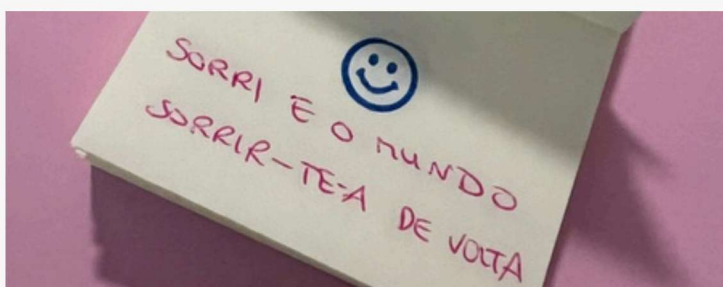 SORRI E O MUNDO
SORRIR-TE-A DE VOLTA